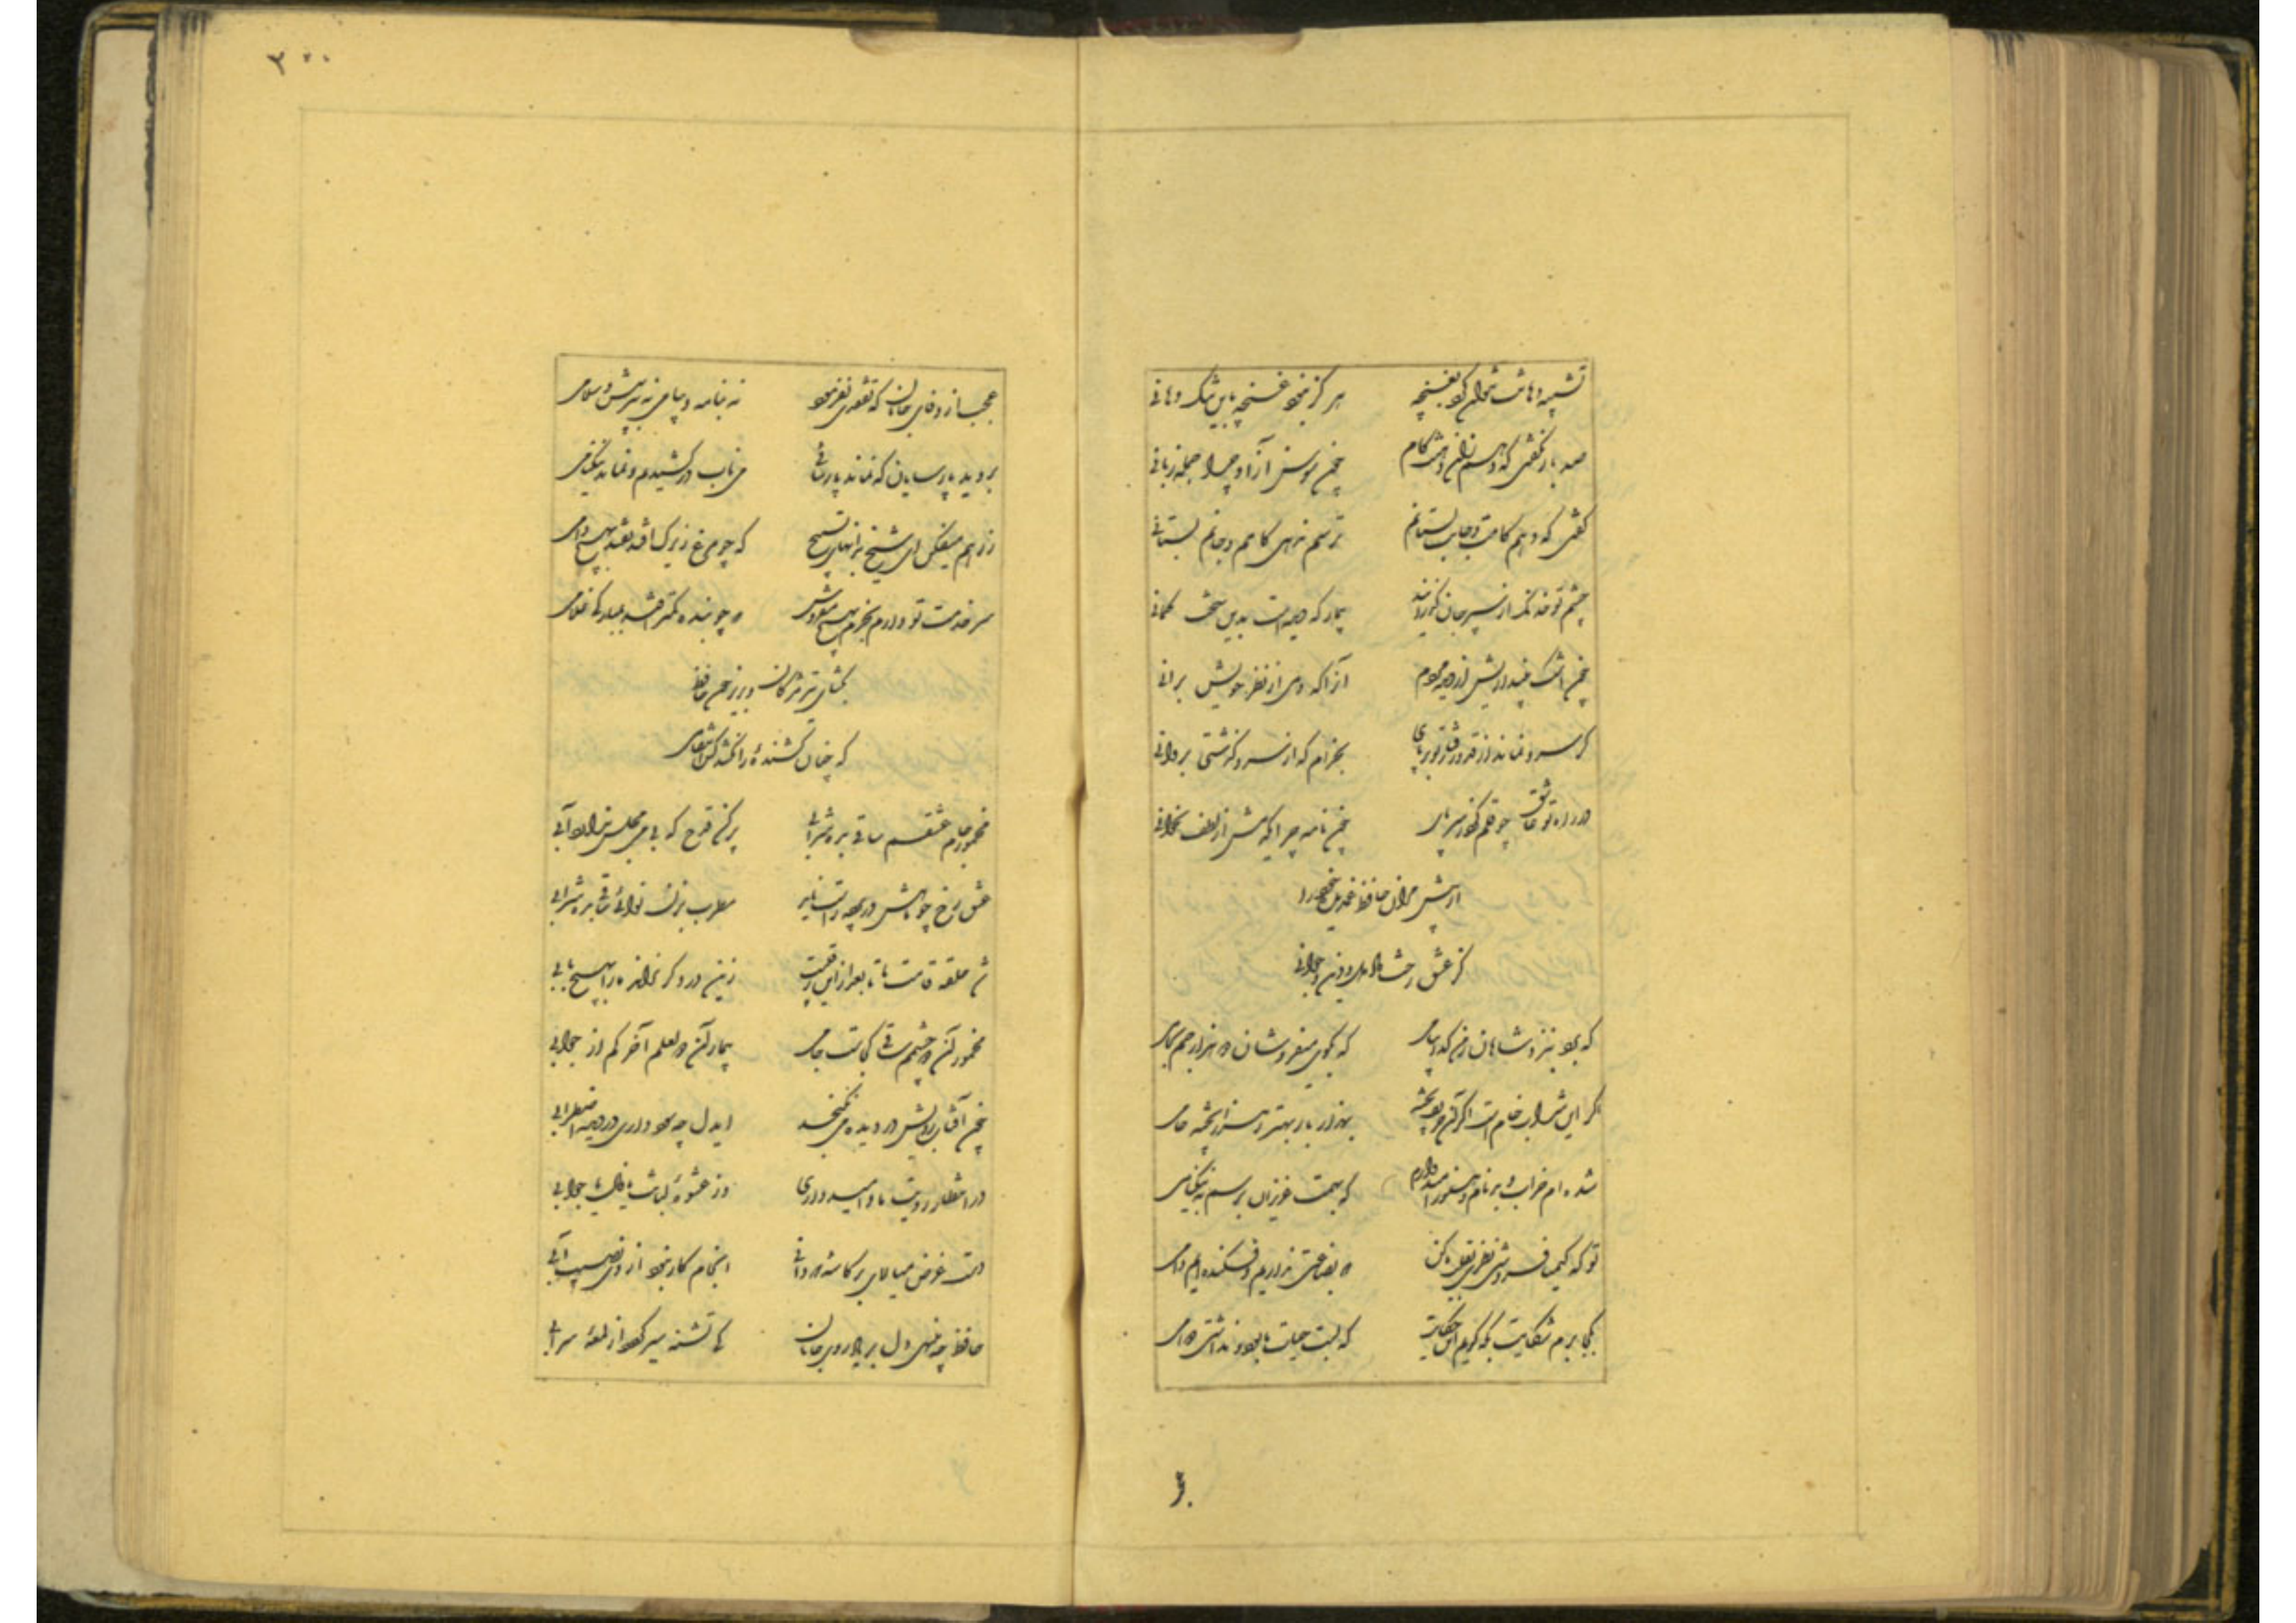 تشبیه دهانت نتوان کرد بغنچه هرگز نبود غنچه باین تنگ دهانی
صد بار بگفتی که دهم زان دهنت کام چون سوسن آزاد چرا جمله زبانی
گفتی که دهم کامت و جانت بستانم ترسم ندهی کامم و جانم بستانی
چشم تو خدنگ از سپر جان گذراند بیمار که دیدست بدین سخت کمانی
چون اشک بیندازیش از دیده مردم آنرا که دمی از نظر خویش برانی
گر سرو نماند از قد و رفتار تو بر جای بخرام که از سرو گذشتی بروانی
در راه تو عاشق چو قلم کرد ز سر پای چون نامه چرا یکدمش از لطف نخوانی
از پیش مران حافظ غمدیده خود را
کز عشق رخت داد دل و دین و جوانی
که برد بنزد شاهان ز من گدا پیامی که بکوی میفروشان دو هزار جم بجامی
اگر این شراب خام است اگر آن حریف پخته بهزار بار بهتر ز هزار پخته خامی
شده‌ام خراب و بدنام و هنوز امیدوارم که بهمت عزیزان برسم به نیکنامی
تو که کیمیا فروشی نظری بقلب ما کن که بضاعتی نداریم و فکنده‌ایم دامی
بکجا برم شکایت بکه گویم این حکایت که لبت حیات ما بود و نداشتی دوامی
بر
۲۰۰
عجب از وفای جانان که تفقدی نفرمود نه بنامه و پیامی نه بپرسش و سلامی
بروید پارسایان که نماند پارسائی می ناب درکشیدم و نماند نیکنامی
ز رهم میفکن ای شیخ بدانهای تسبیح که چو مرغ زیرک افتد نفتد بهیچ دامی
سر خدمت تو دارم بخرم بهیچ و مفروش که چو بنده کمتر افتد بمبارکی غلامی
بگشای تیر مژگان و بریز خون حافظ
که چنان کشنده را نکشد کس انتقامی
مخمور جام عشقم ساقی بده شرابی پر کن قدح که بی می مجلس ندارد آبی
عشق رخ چو ماهش در پرده راست ناید مطرب بزن نوائی ساقی بده شرابی
شد حلقه قامت ما تا بعد از این رقیبت زین در دگر نراند ما را بهیچ بابی
مخمور آن دو چشمم ساقی کجاست جامی بیمار آن دو لعلم آخر کم از جوابی
چون آفتاب رویش در دیده می‌نگنجد ایدل چه سود داری در دیده اضطرابی
در انتظار رویت ما و امیدواری وز عشوه لبانت ما و خیال خوابی
دست غرض میالای بر کاسه دو دانی انجام کار نبود از وی نصیب آبی
حافظ چه می‌نهی دل بر یاد روی جانان کی تشنه سیر گردد از لمعه سرابی